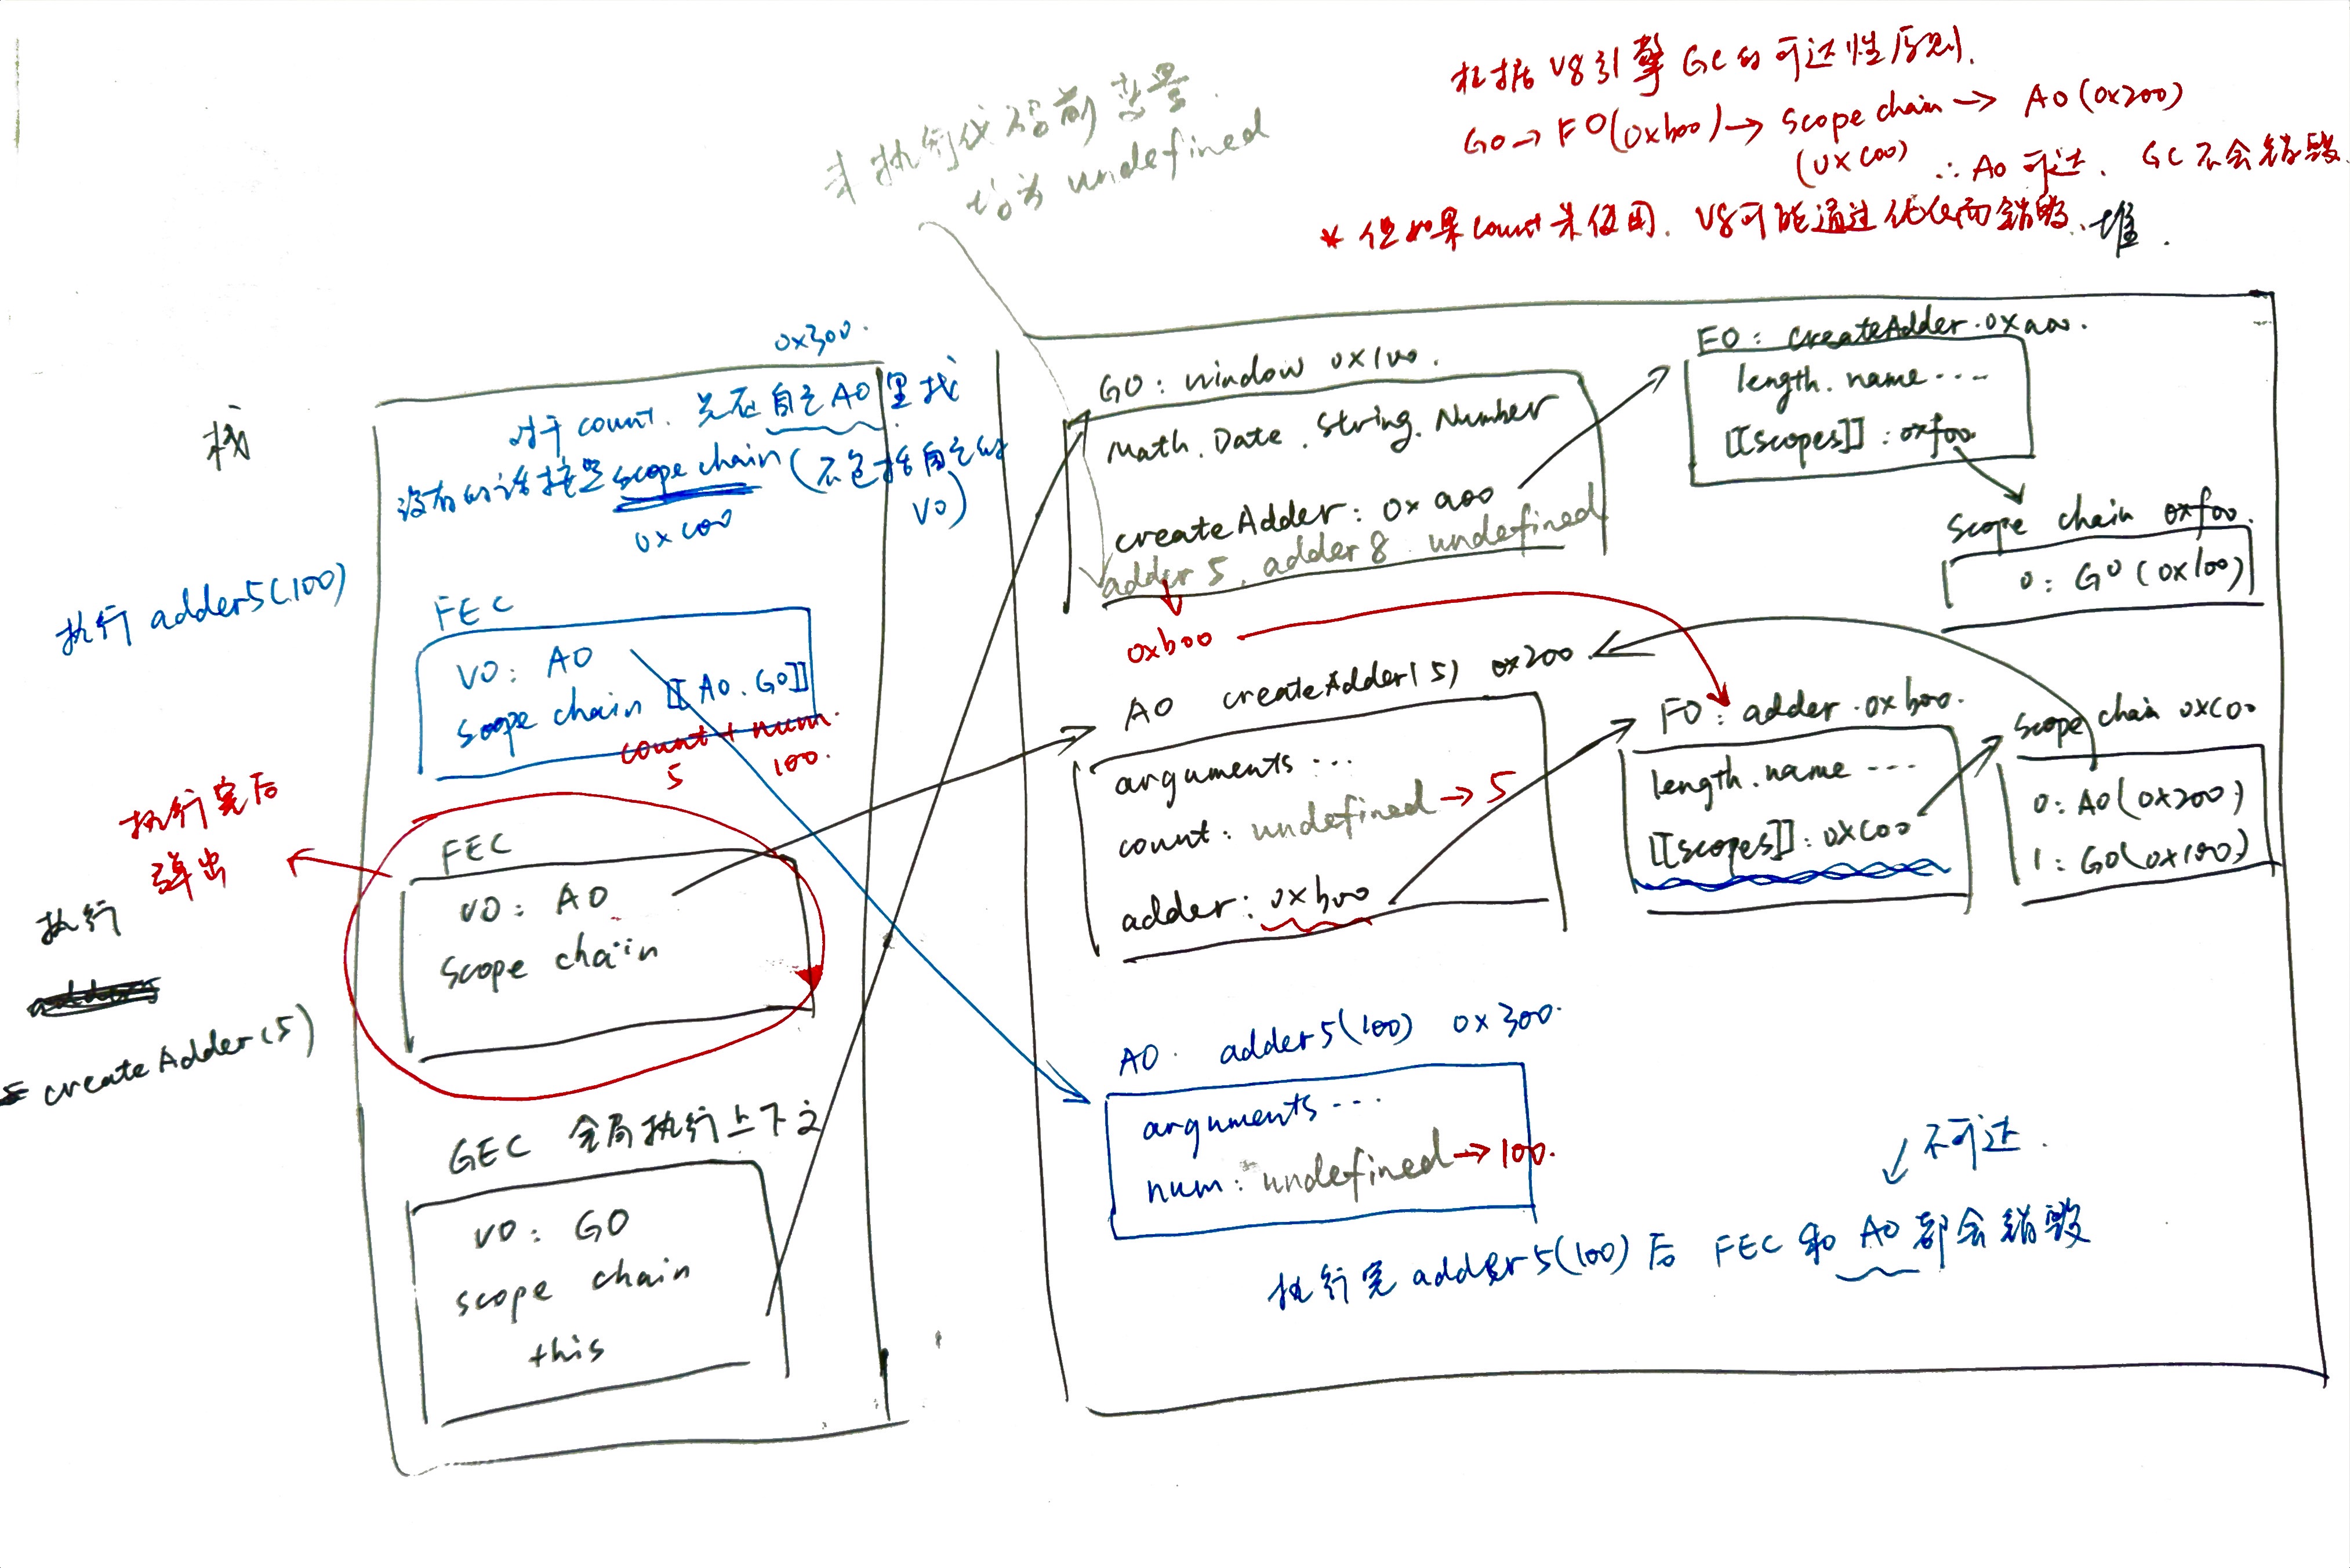 根据V8引擎GC的可达性原则.
GO→FO(0xb00)→scope chain→AO(0x200)
(0xc00) ∴AO可达. GC不会销毁
* 但如果count未使用. V8可能通过优化而销毁.
堆.
未执行代码前变量
均为undefined
栈
0x300.
对于count. 先在自己AO里找
没有的话接着scope chain(不包括自己的
VO)
0xc00
执行adder5(100)
FEC
VO: AO
scope chain [[AO.GO]]
count + num.
5 100.
执行完后
弹出
执行
createAdder(5)
FEC
VO: AO
scope chain
GEC 全局执行上下文
VO: GO
scope chain
this
GO: window 0x100.
Math.Date.String.Number
createAdder: 0xa00
adder5. adder8 undefined
0xb00
FO: createAdder.0xa00.
length.name....
[[scopes]]: 0xf00.
scope chain 0xf00.
0: GO(0x100)
AO createAdder(5) 0x200.
arguments ...
count: undefined→5
adder: 0xb00
FO: adder.0xb00.
length.name ...
[[scopes]]: 0xc00
scope chain 0xc00
0: AO(0x200)
1: GO(0x100)
AO. adder5(100) 0x300.
arguments ...
num: undefined→100.
不可达.
执行完adder5(100)后 FEC和AO都会销毁